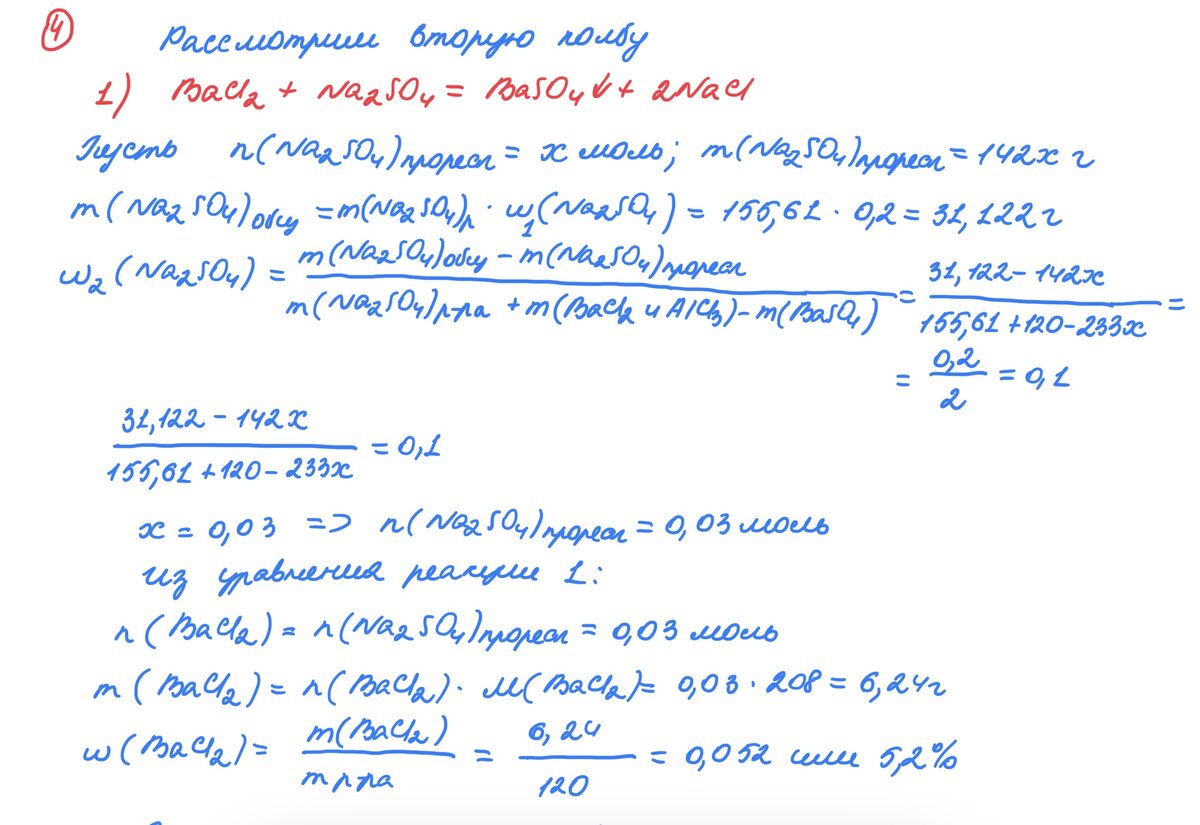 4 Рассмотрим вторую колбу
1) BaCl2 + Na2SO4 = BaSO4↓ + 2NaCl
Пусть n(Na2SO4)прореаг = x моль; m(Na2SO4)прореаг = 142x г
m(Na2SO4)общ = m(Na2SO4)р · w1(Na2SO4) = 155,61 · 0,2 = 31,122 г
w2(Na2SO4) = m(Na2SO4)общ − m(Na2SO4)прореаг / m(Na2SO4)р-ра + m(BaCl2 и AlCl3) − m(BaSO4) = 31,122 − 142x / 155,61 + 120 − 233x =
= 0,2 / 2 = 0,1
31,122 − 142x / 155,61 + 120 − 233x = 0,1
x = 0,03 => n(Na2SO4)прореаг = 0,03 моль
Из уравнения реакции 1:
n(BaCl2) = n(Na2SO4)прореаг = 0,03 моль
m(BaCl2) = n(BaCl2) · M(BaCl2) = 0,03 · 208 = 6,24 г
w(BaCl2) = m(BaCl2) / m р-ра = 6,24 / 120 = 0,052 или 5,2%